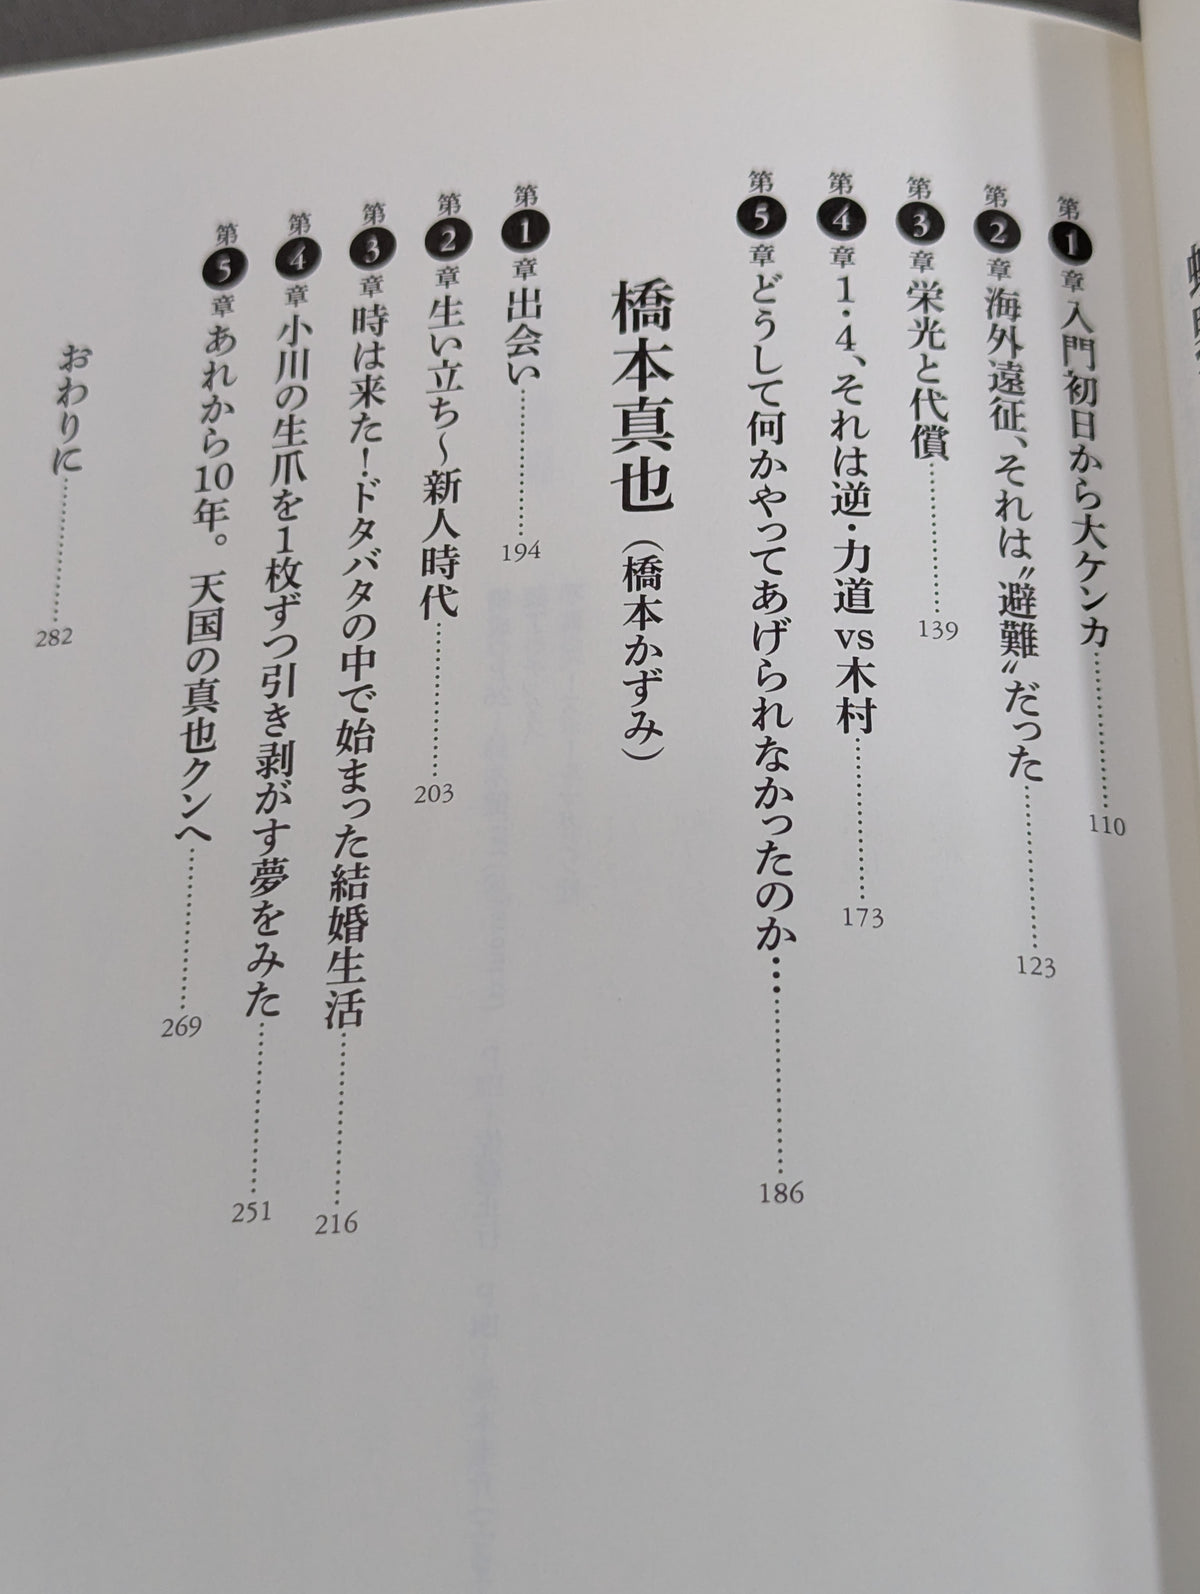 第1章 入門初日から大ケンカ………110
第2章 海外遠征、それは〝避難〟だった………123
第3章 栄光と代償………139
第4章 1・4、それは逆・力道vs木村………173
第5章 どうして何かやってあげられなかったのか…………186
橋本真也（橋本かずみ）
第1章 出会い………194
第2章 生い立ち～新人時代………203
第3章 時は来た！ドタバタの中で始まった結婚生活………216
第4章 小川の生爪を1枚ずつ引き剥がす夢をみた………251
第5章 あれから10年。天国の真也クンへ………269
おわりに………282